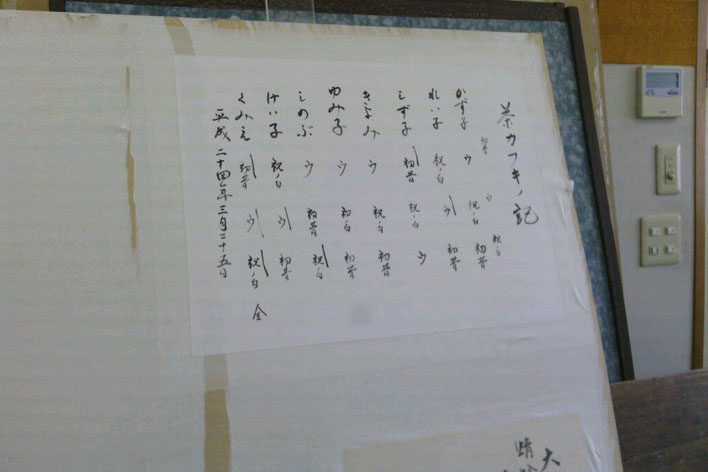 茶カフキノ記
初昔 ウ 祝ノ白
かず子 ウ 祝ノ白 初昔
れい子 祝ノ白 ウ 初昔
しず子 初昔 祝ノ白 ウ
きよみ ウ 祝ノ白 初昔
ゆみ子 ウ 祝ノ白 初昔
しのぶ ウ 初昔 祝ノ白
けい子 祝ノ白 ウ 初昔
くみえ 初昔 ウ 祝ノ白 全
平成二十四年三月二十五日
大